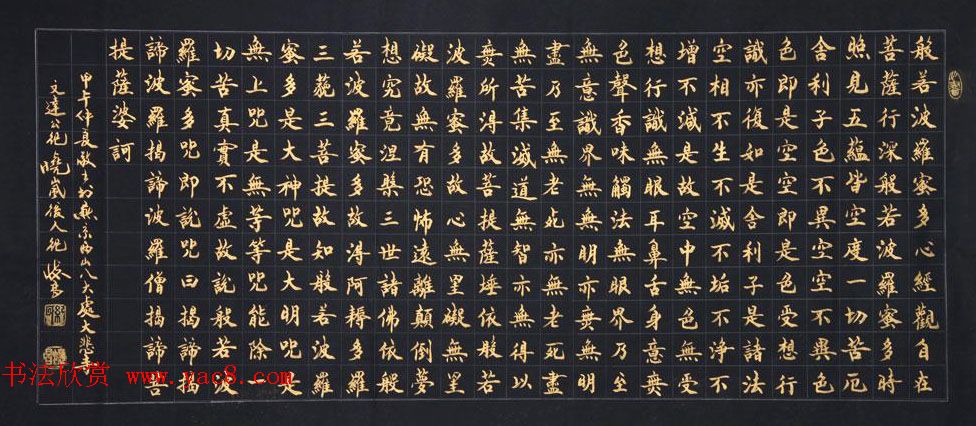 般若波羅蜜多心經觀自在
菩薩行深般若波羅蜜多時
照見五蘊皆空度一切苦厄
舍利子色不異空空不異色
色即是空空即是色受想行
識亦復如是舍利子是諸法
空相不生不滅不垢不淨不
增不減是故空中無色無受
想行識無眼耳鼻舌身意無
色聲香味觸法無眼界乃至
無意識界無無明亦無無明
盡乃至無老死亦無老死盡
無苦集滅道無智亦無得以
無所得故菩提薩埵依般若
波羅蜜多故心無罣礙無罣
礙故無有恐怖遠離顛倒夢
想究竟涅槃三世諸佛依般
若波羅蜜多故得阿耨多羅
三藐三菩提故知般若波羅
蜜多是大神咒是大明咒是
無上咒是無等等咒能除一
切苦真實不虛故說般若波
羅蜜多咒即說咒曰揭諦揭
諦波羅揭諦波羅僧揭諦菩
提薩婆訶
甲午仲夏敬書於燕京西山八大處大悲寺
文達苑曉嵐後人紀
书法欣赏 www.yac8.com